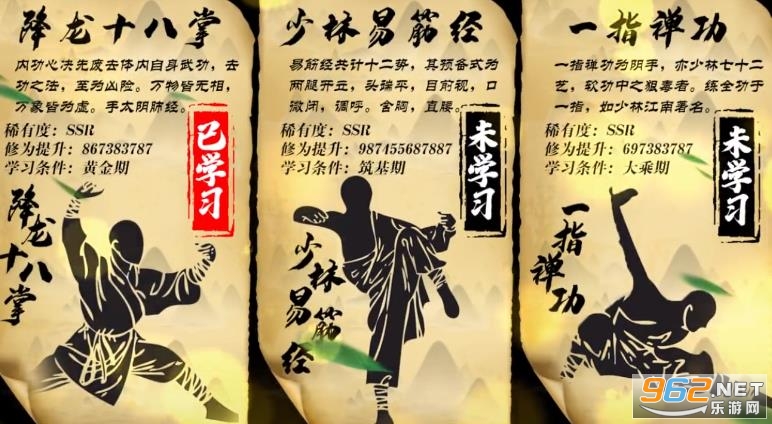 降龙十八掌
内功心决先废去体内自身武功，去
功之法，至为凶险。万物皆无相，
万象皆为虚。手太阴肺经。
稀有度：SSR
修为提升：867383787
学习条件：黄金期
已学习
降龙
十八掌
少林易筋经
易筋经共计十二势，其预备式为
两腿开立，头端平，目前视，口
微闭，调呼。含胸，直腰。
稀有度：SSR
修为提升：987455687887
学习条件：筑基期
未学习
少林
易筋
经
一指禅功
一指禅功为阴手，亦少林七十二
艺，软功中之狠毒者。练全功于
一指，如少林江南署名。
稀有度：SSR
修为提升：697383787
学习条件：大乘期
未学习
一指
禅功
962.NET
乐游网